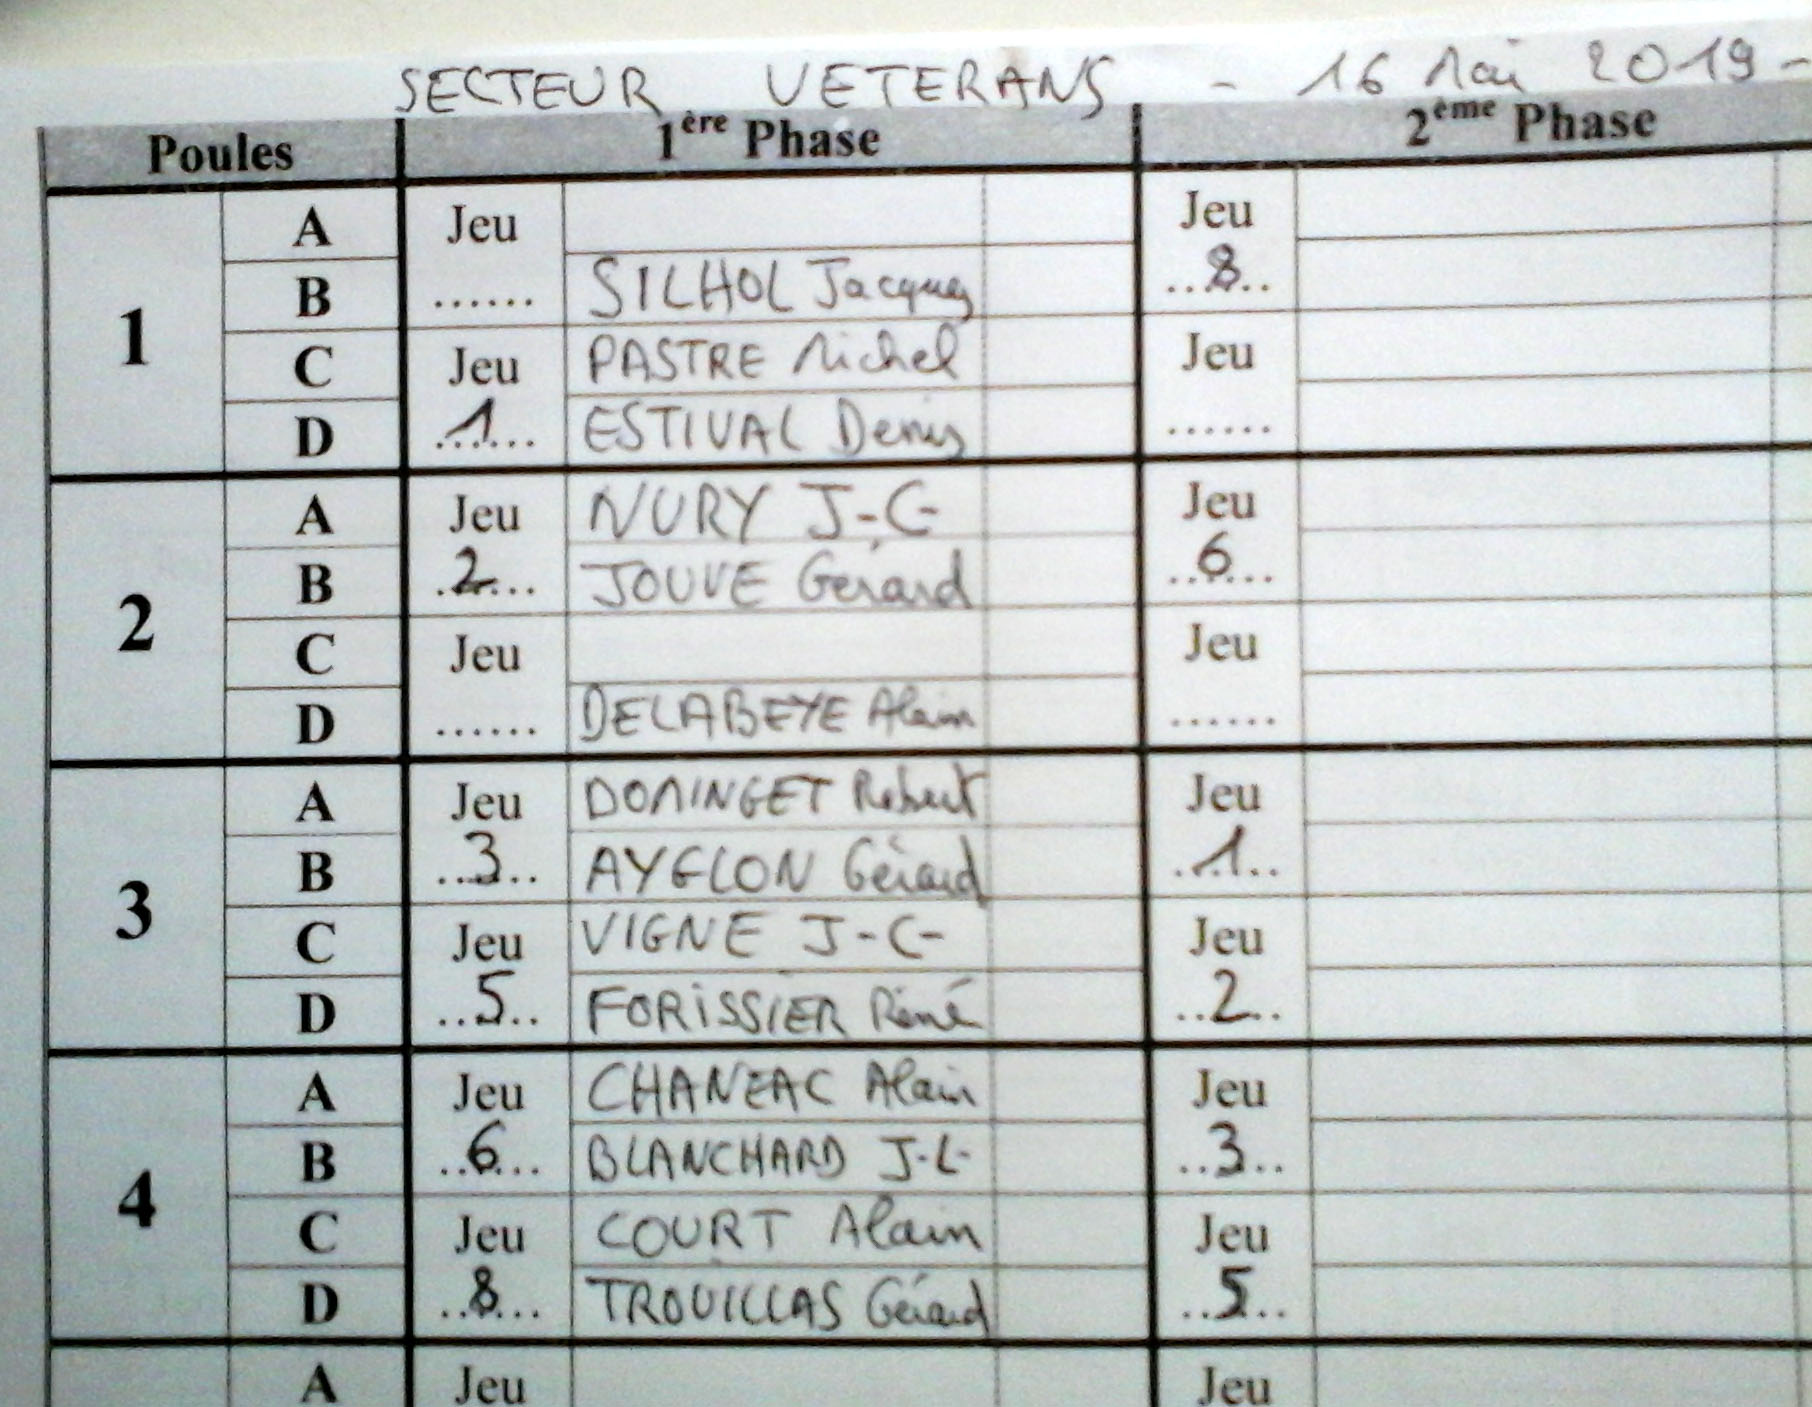 SECTEUR VETERANS - 16 Mai 2019 -
Poules 1ère Phase 2ème Phase
1
A Jeu Jeu
B ...... SILHOL Jacques ..8..
C Jeu PASTRE Michel Jeu
D ..1... ESTIVAL Denis ......
2
A Jeu NURY J-C- Jeu
B .2.... JOUVE Gérard ..6...
C Jeu Jeu
D ...... DELABEYE Alain ......
3
A Jeu DOMINGET Robert Jeu
B ...3.. AYGLON Gérard ..1..
C Jeu VIGNE J-C- Jeu
D ..5.. FORISSIER Réné ..2..
4
A Jeu CHANEAC Alain Jeu
B ..6... BLANCHARD J-L- ..3..
C Jeu COURT Alain Jeu
D ..8... TROUILLAS Gérard ..5..
A Jeu Jeu